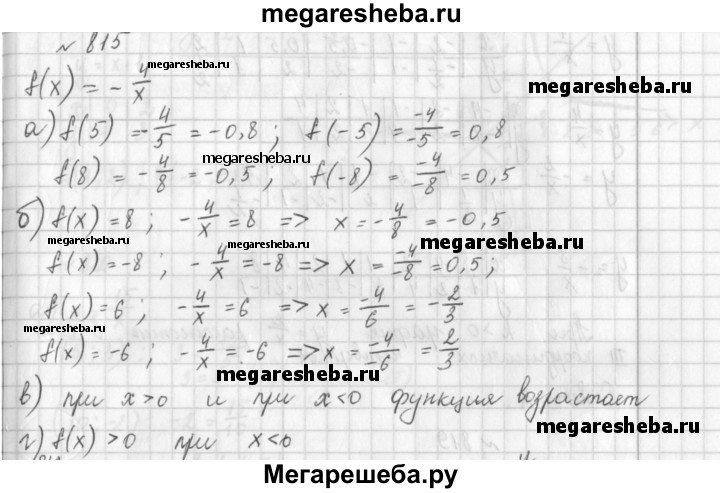 megaresheba.ru
№ 815
megaresheba.ru
f(x) = - 4/x
megaresheba.ru
а) f(5) = -4/5 = -0,8 ; f(-5) = -4/-5 = 0,8
megaresheba.ru
f(8) = -4/8 = -0,5 ; f(-8) = -4/-8 = 0,5
б) f(x) = 8 ; -4/x = 8 => x = -4/8 = -0,5
megaresheba.ru megaresheba.ru megaresheba.ru
f(x) = -8 ; -4/x = -8 => x = -4/-8 = 0,5 ;
megaresheba.ru
f(x) = 6 ; -4/x = 6 => x = -4/6 = -2/3
megaresheba.ru
f(x) = -6 ; -4/x = -6 => x = -4/-6 = 2/3
megaresheba.ru
в) при x>0 и при x<0 функция возрастает
megaresheba.ru
г) f(x) > 0 при x<0
Мегарешеба.ру